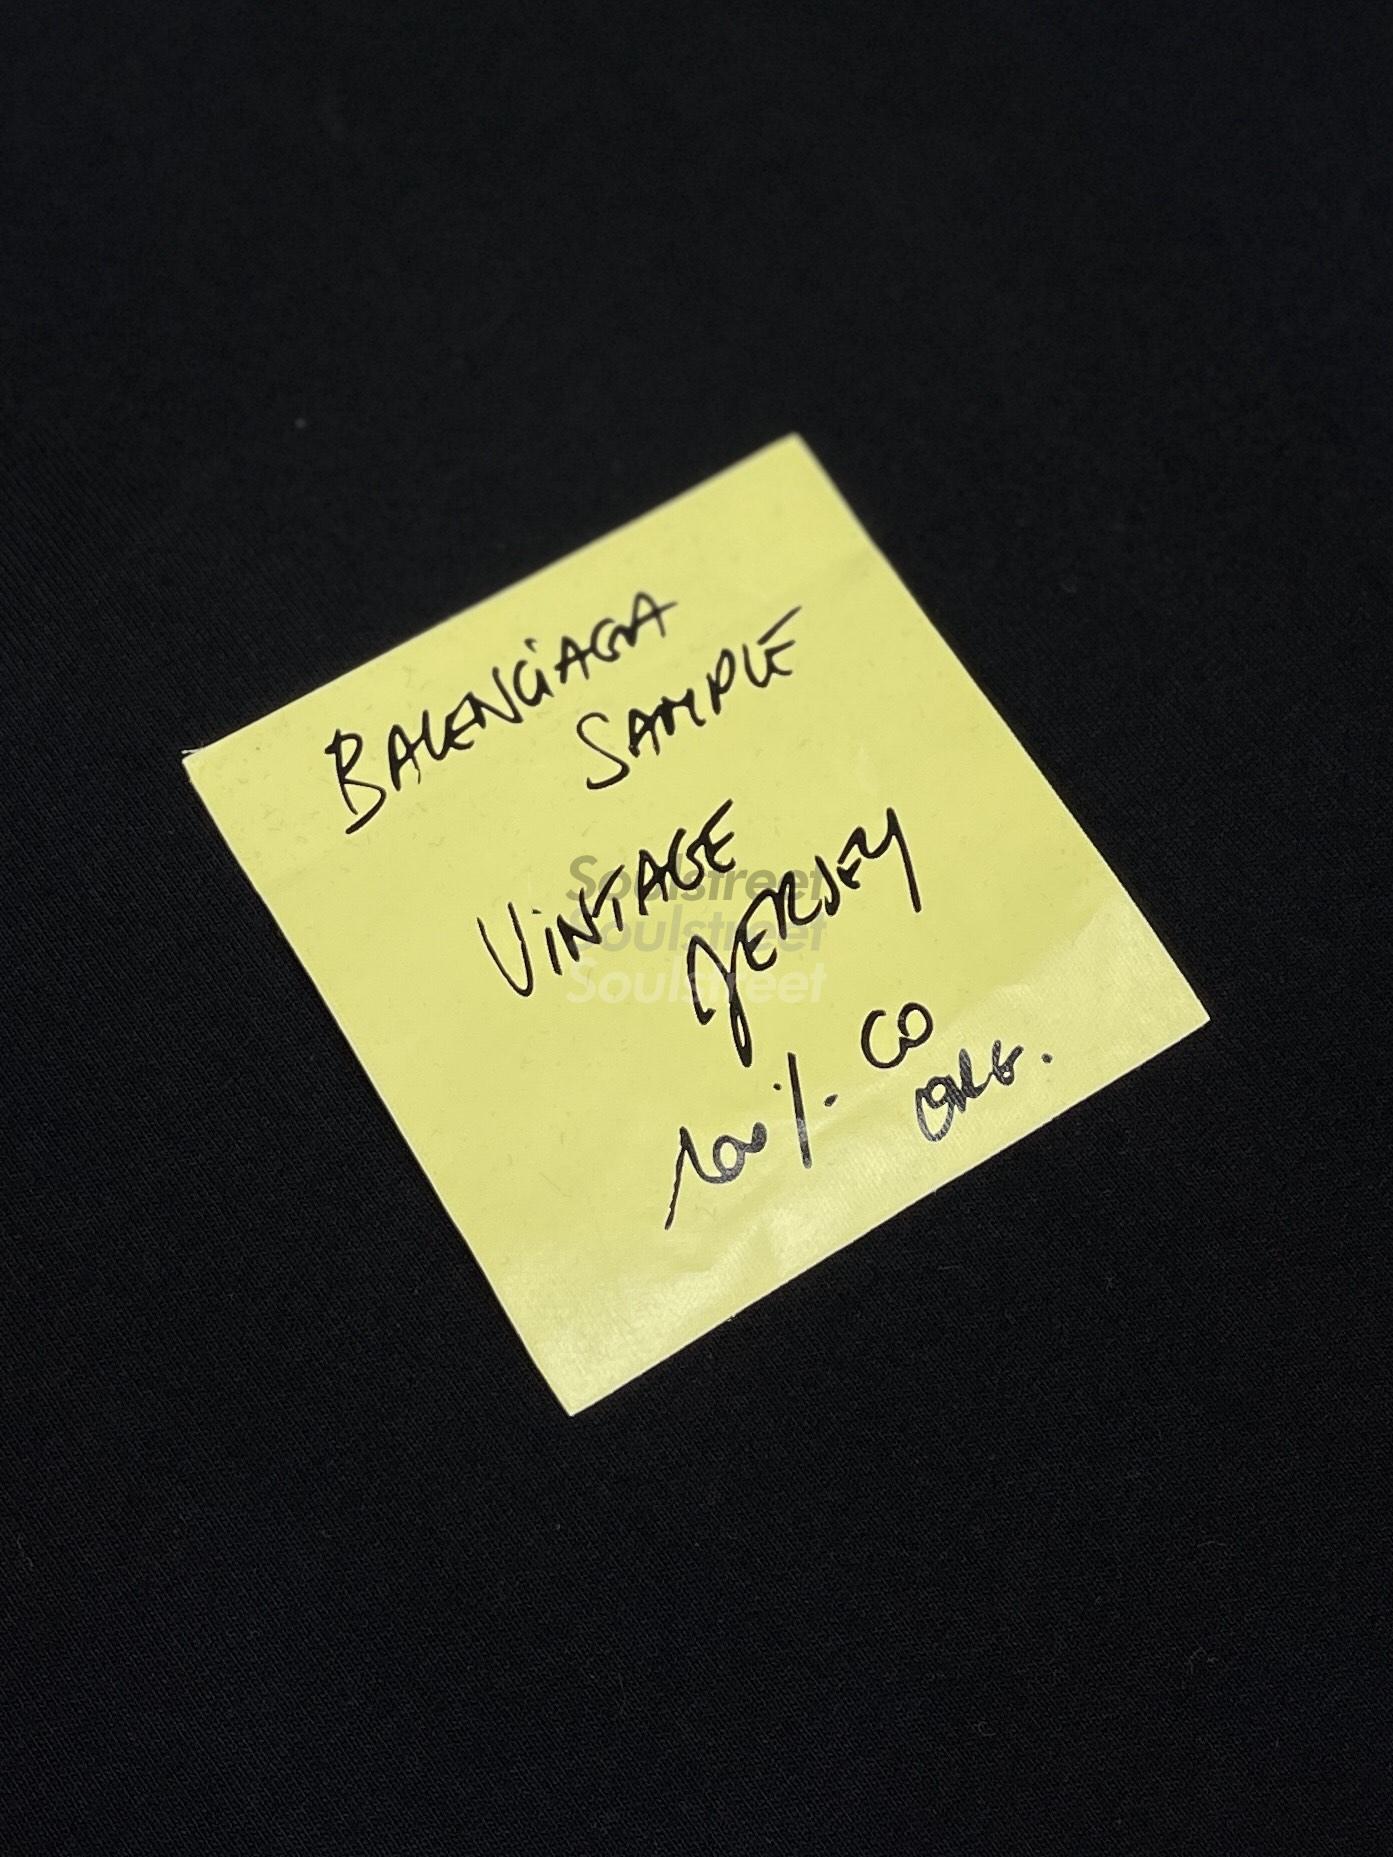 BALENCIAGA
SAMPLE
VINTAGE
JERSEY
100%. CO
ORG.
Soulstreet
Soulstreet
Soulstreet